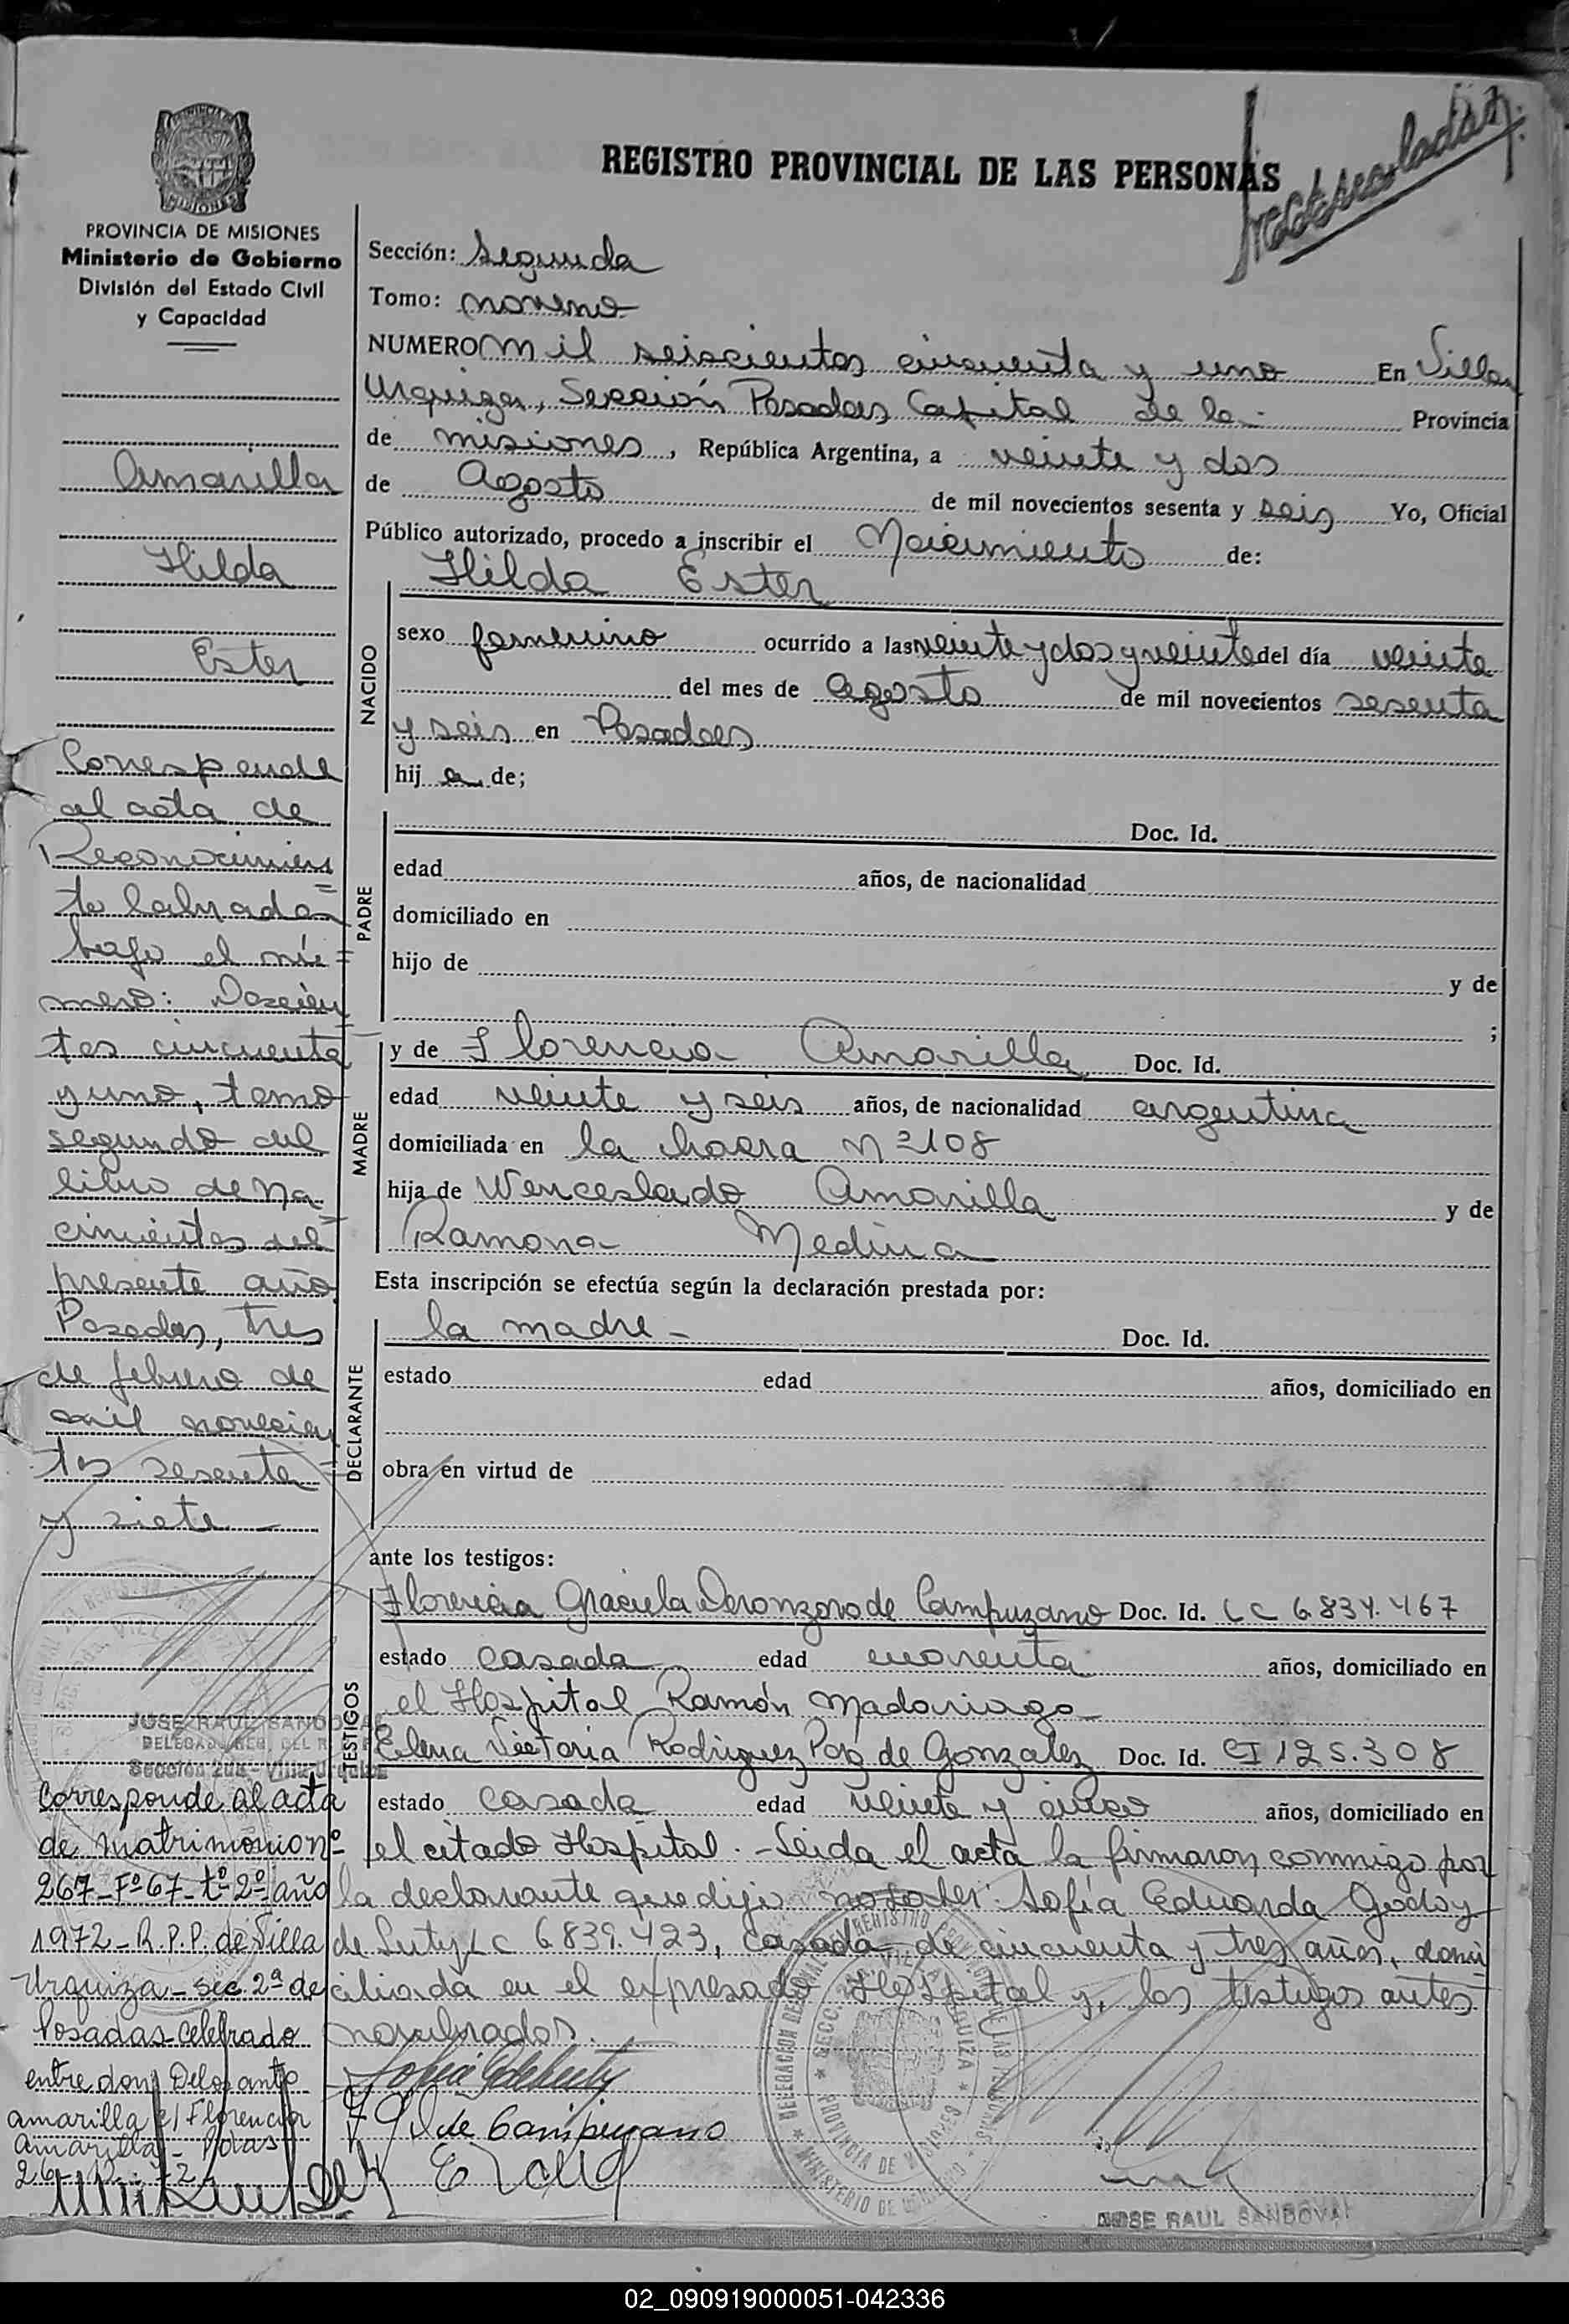 REGISTRO PROVINCIAL DE LAS PERSONAS
PROVINCIA DE MISIONES
Ministerio de Gobierno
División del Estado Civil
y Capacidad
Amarilla
Hilda
Ester
Corresponde
al acta de
Reconocimien
to labrada
bajo el nú=
mero: Doscien
tos cincuenta
y uno, tomo
segundo del
libro de na
cimientos del
presente año
Posadas, tres
de febrero de
mil novecien
tos sesenta
y siete
JOSE RAUL SANDOVAL
Corresponde al acta
de matrimonio nº
267-Fº67-tº2º año
1972-R.P.P. de Villa
Urquiza-sec 2ª de
Posadas-Celebrado
entre don
amarilla c/ Florencia
amarilla
Sección: Segunda
Tomo: noveno
NUMERO mil seiscientos cincuenta y uno En Villa
Urquiza, Sección Posadas Capital de la Provincia
de misiones, República Argentina, a veinte y dos
de Agosto de mil novecientos sesenta y seis Yo, Oficial
Público autorizado, procedo a inscribir el Nacimiento de:
Hilda Ester
NACIDO
sexo femenino ocurrido a las veinte y dos y veinte del día veinte
del mes de agosto de mil novecientos sesenta
y seis en Posadas
hij a de;
PADRE
Doc. Id.
edad años, de nacionalidad
domiciliado en
hijo de y de
;
MADRE
y de Florencia Amarilla Doc. Id.
edad veinte y seis años, de nacionalidad argentina
domiciliada en la chacra Nº 108
hija de Wenceslado Amarilla y de
Ramona Medina
Esta inscripción se efectúa según la declaración prestada por:
DECLARANTE
la madre - Doc. Id.
estado edad años, domiciliado en
obra en virtud de
ante los testigos:
TESTIGOS
Florencia Graciela de Campuzano Doc. Id. LC 6.834.467
estado casada edad años, domiciliado en
el Hospital Ramón Madariaga
Elena Victoria Rodriguez de Gonzalez Doc. Id. CI 125.308
estado casada edad veinte y cinco años, domiciliado en
el citado Hospital.- Leida el acta la firmaron conmigo por
la declarante que dijo no saber: Sofía Eduarda Godoy
de LC 6839.423, casada de cincuenta y tres años, domi
ciliada en el expresado Hospital y, los testigos antes
nombrados.
de Campuzano
JOSE RAUL SANDOVAL
02_090919000051-042336